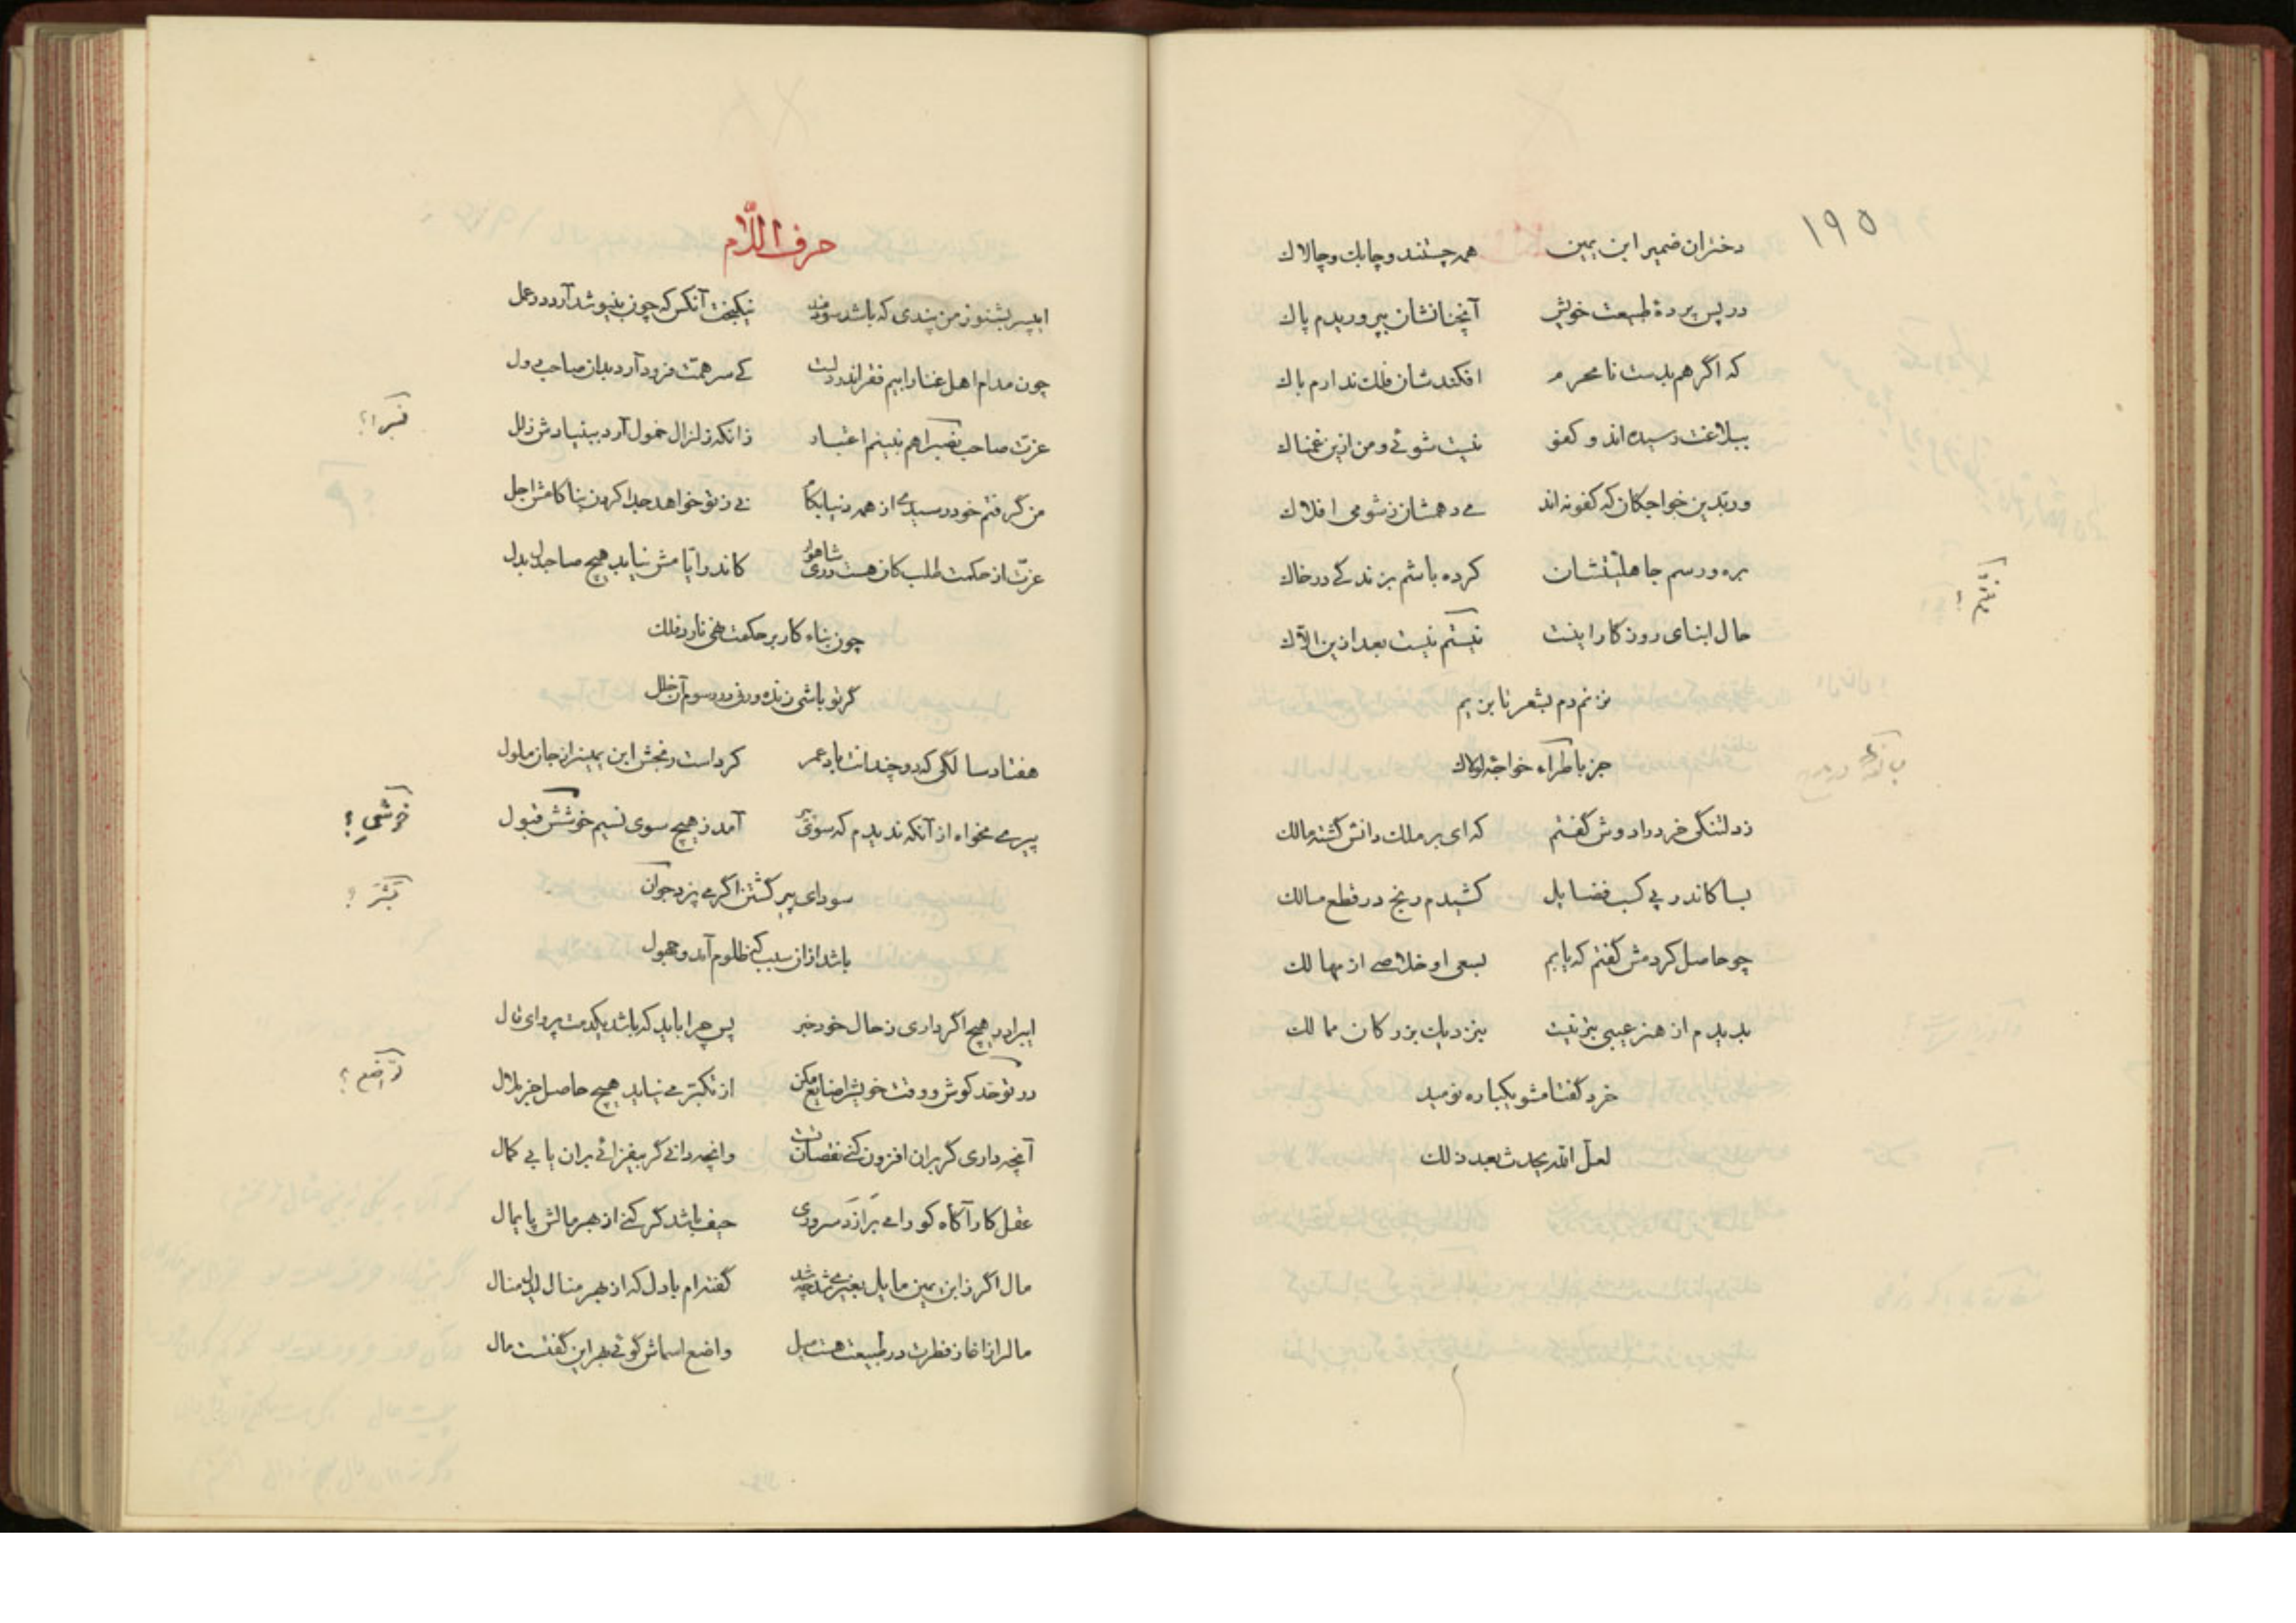 ۱۹۵
دختران ضمیر ابن یمین همه چستند و چابك و چالاك
در پس پردهٔ طبیعت خویش آنچنانشان بپروریدم پاك
که اگر هم بدست نا محرم افکندشان فلك ندارم باك
ببلاغت رسیده‌اند و کفو نیست شوئی و من ازین غمناك
ور بدین خواجگان که کفو نه‌اند می دهمشان ز شومی افلاك
بره و رسم جاهلیتشان کرده باشم بزندکی در خاك
حال ابنای روزکار اینست نیستم نیست بعد ازین الاك
نزنم دم بشعر تا بزیم
جز باطراء خواجه لولاك
ز دلتنکی خرد را دوش کفتم که ای بر ملك دانش کشته مالك
بسا کاندر پی کسب فضایل کشیدم رنج در قطع مسالك
چو حاصل کردمش کفتم که یابم بسعی او خلاصی از مهالك
بدیدم از هنر عیبی بتر نیست بنزدیك بزرکان ممالك
خرد کفتا مشو یکباره نومید
لعل الله یحدث بعد ذلك
حرف اللّام
ایپسر بشنو ز من پندی که باشد سودمند نیکبخت آنکس که چون بنیوشد آرد در عمل
چون مدام اهل غنا را بیم فقر اندر دلست کی سر همت فرود آرد بدان صاحب دول
عزت صاحب نصبرا هم نبینم اعتبار زانکه زلزال خمول آرد ببنیادش زلل
من کرفتم خود رسیدی از همه دنیا بکام نی ز تو خواهد جدا کردن بناکامش اجل
عزت از حکمت طلب کان هست دری شاهوار کاندر ایامش نیابد هیچ صاحبدل بدل
چون بناء کار بر حکمت نهی نارد فلك
کر تو باشی زنده ور نی در رسوم آن خلل
هفتاد سالکی که دو چندانت باد عمر کرداست رنجش ابن یمین را ز جان ملول
پیری مخواه از آنکه ندیدم که سوی آمد ز هیچ سوی نسیم خوشش قبول
سودای پیر کشتن اکر می پزد جوان
باشد ازان سبب که ظلوم آمد و جهول
ایبرادر هیچ اکر داری ز حال خود خبر پس چرا باید که باشد یکدمت پروای مال
در توحد کوش و وقت خویشرا ضایع مکن از تکبر می نیاید هیچ حاصل جز ملال
آنچه داری کر بران افزون کنی نقصان تست وانچه دانی کر بیفزائی بران یابی کمال
عقل کار آکاه کو را می برازد سروری حیف باشد کر کنی از بهر مالش پایمال
مال اکر ز ابن یمین مایل بغیری شد چه شد کفته‌ام با دل که از بهر منال ایدل منال
مالرا ز اغاز فطرت در طبیعت هست میل واضع اسماش کوئی بهر این کفتست مال